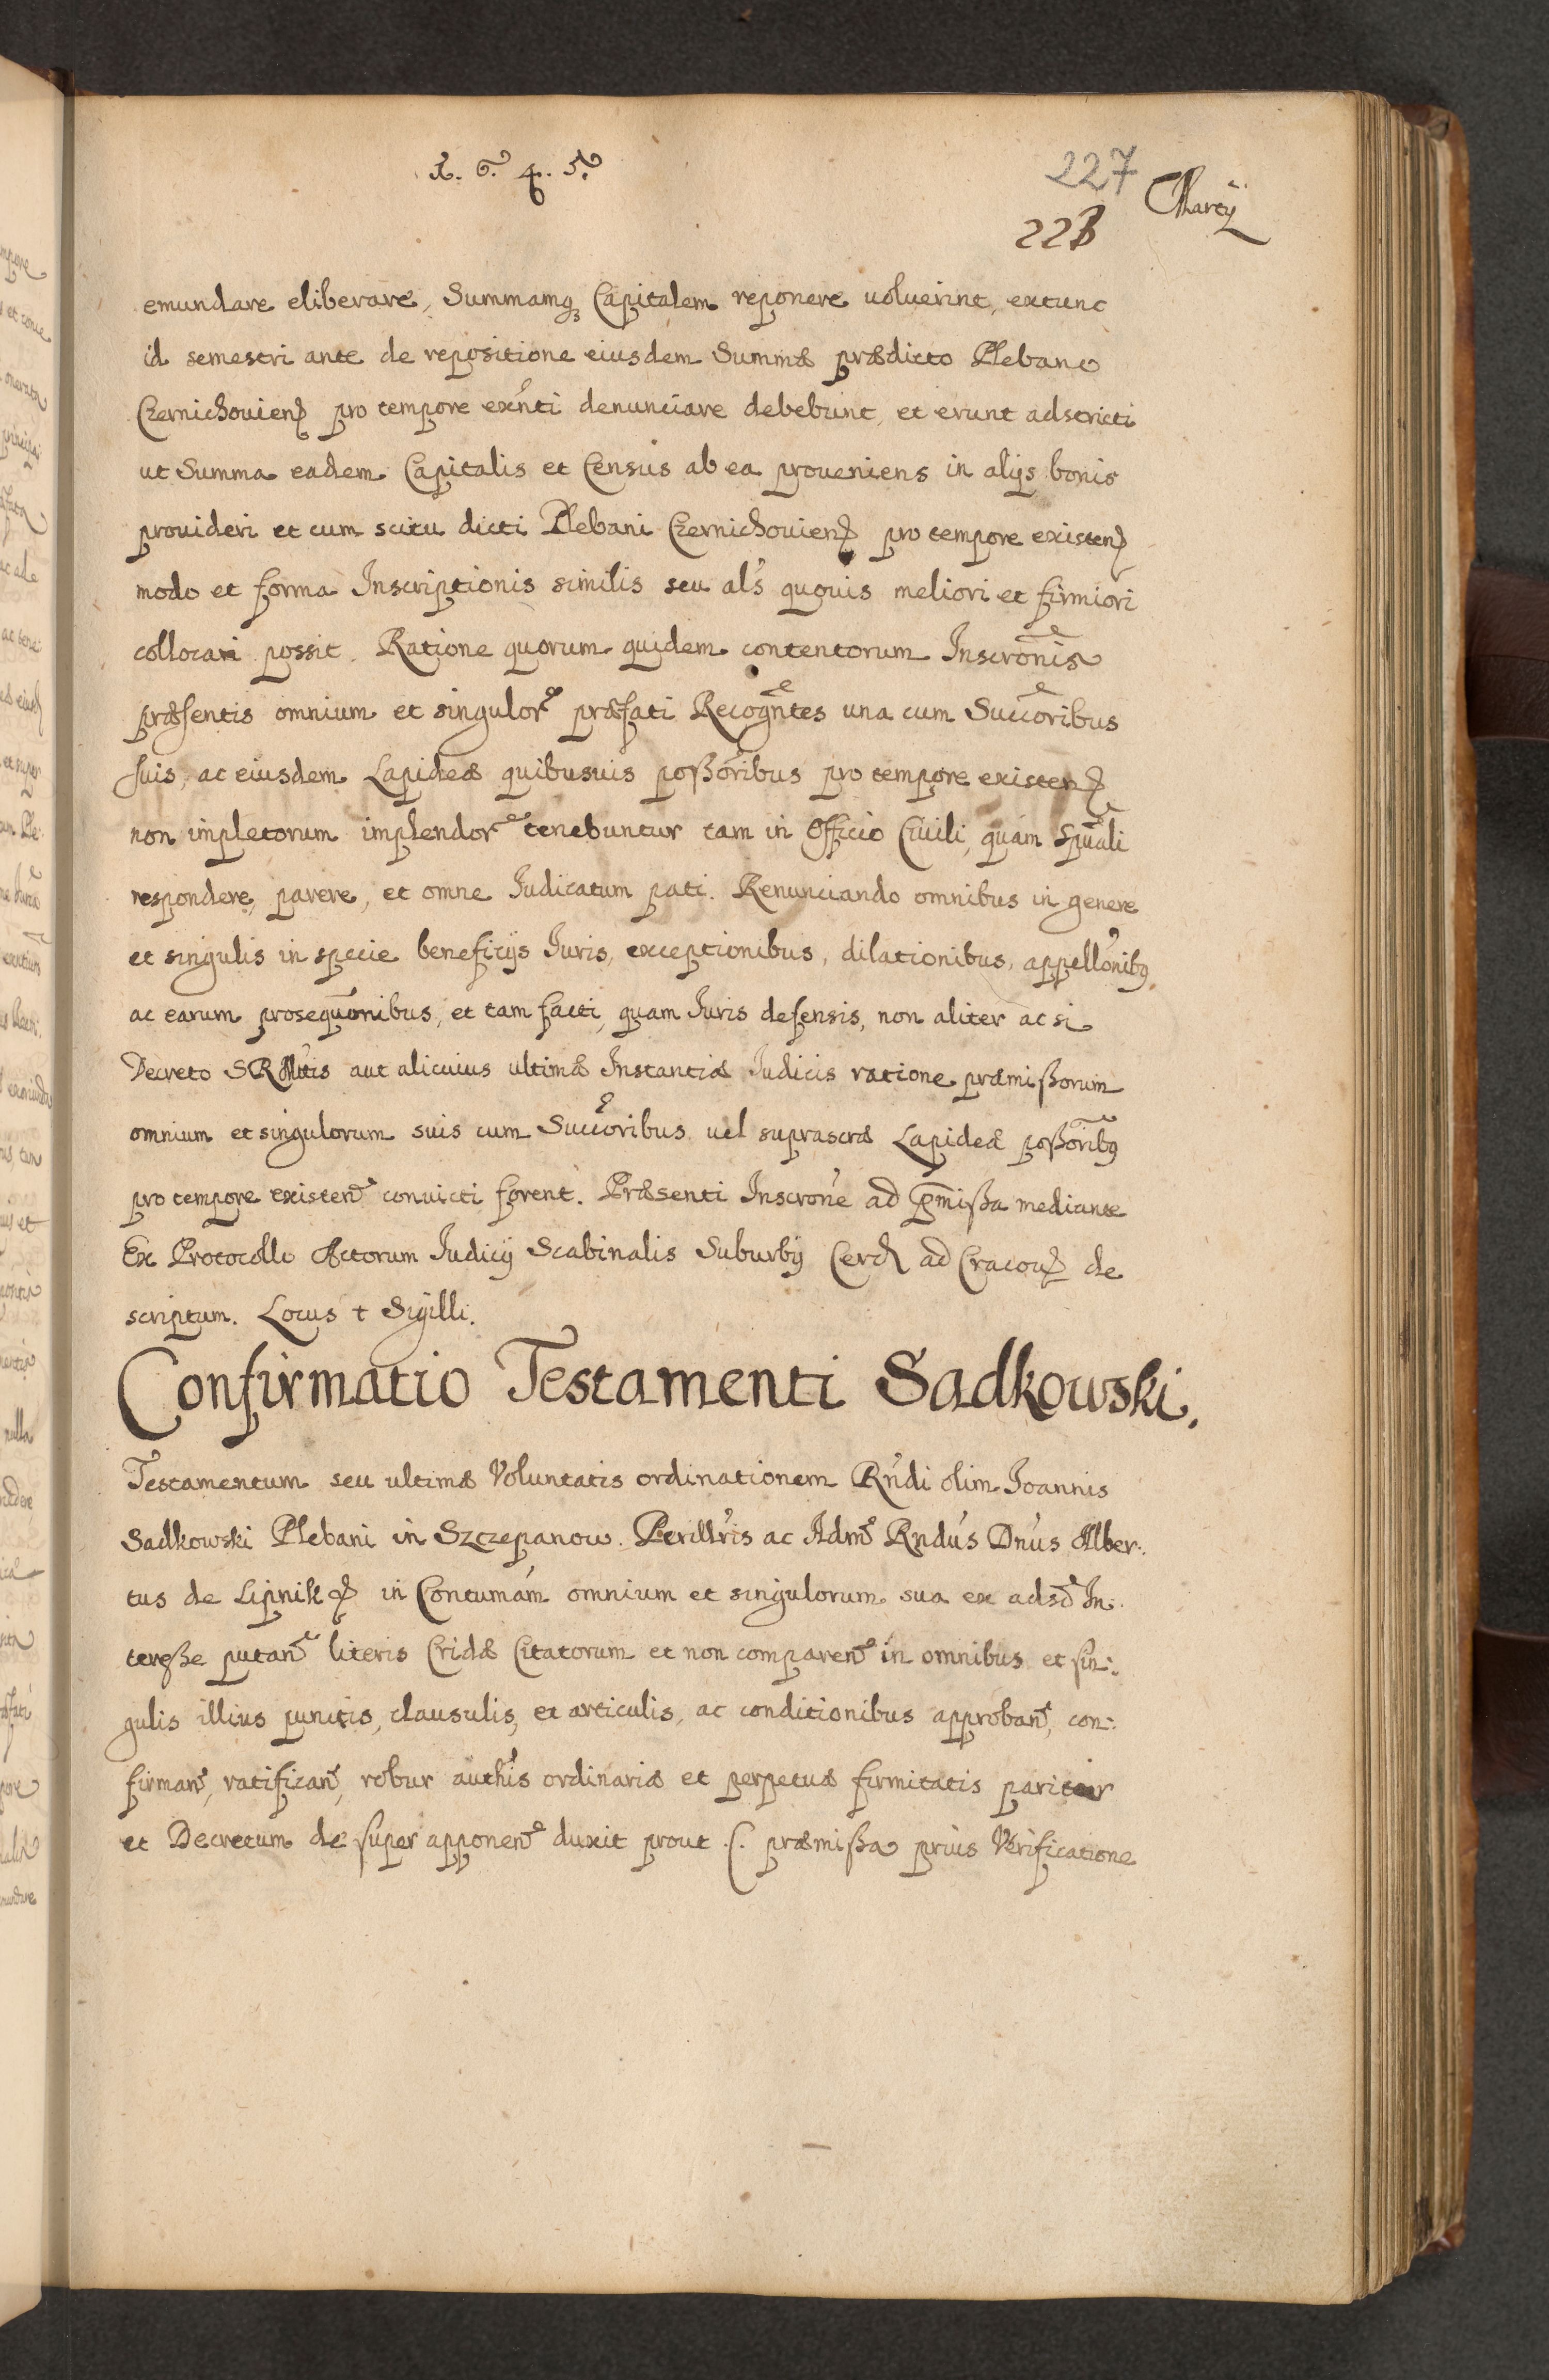 1. 6. 4. 5.
227
Martij
228
emundare eliberare, Summamq₃ Capitalem reponere uoluerint, extunc
id semestri ante de repositione eiusdem Summæ prædicto Plebano
Czernichouien pro tempore exn̄ti denunciare debebunt, et erunt adstricti
ut Summa eadem Capitalis et Census ab ea proueniens in alijs bonis
prouideri et cum scitu dicti Plebani Czernichouien pro tempore existen
modo et forma Inscriptionis similis seu al's quouis meliori et firmiori
collocari possit. Ratione quorum quidem contentorum Inscrōnis
præsentis omnium et singulor præfati Recogn̄tes una cum Succōribus
suis, ac eiusdem Lapideæ quibusuis poßōribus pro tempore existen
non impletorum implendor tenebuntur tam in Officio Ciuili, quam Spūali
respondere, parere, et omne Iudicatum pati. Renunciando omnibus in genere
et singulis in specie beneficijs Iuris, exceptionibus, dilationibus, appellōnibꝰ
ac earum prosequōnibus, et tam facti, quam Iuris defensis, non aliter ac si
Decreto SRMttis aut alicuius ultimæ Instantiæ Iudicis ratione præmißorum
omnium et singulorum suis cum Succōribus uel suprascræ Lapideæ poßōribꝰ
pro tempore existen conuicti forent. Præsenti Inscrōne ad p̄mißa mediante
Ex Protocollo Actorum Iudicij Scabinalis Suburbij Cerd ad Cracou de
scriptum. Locus + Sigilli.
Confirmatio Testamenti Sadkowski.
Testamentum seu ultimæ Voluntatis ordinationem Rn̄di olim Ioannis
Sadkowski Plebani in Szczepanow. Perillr̄is ac Adm Rndūs Dn̄us Alber:
tus de Lipnik in Contumām omnium et singulorum sua ex ads̄d In:
tereße putan literis Cridæ Citatorum et non comparen in omnibus et sin:
gulis illius punctis, clausulis, et articulis, ac conditionibus approban, con:
firman, ratifican, robur authīs ordinariæ et perpetuæ firmitatis pariter
et Decretum de super apponen duxit prout præmißa prius Verificatione